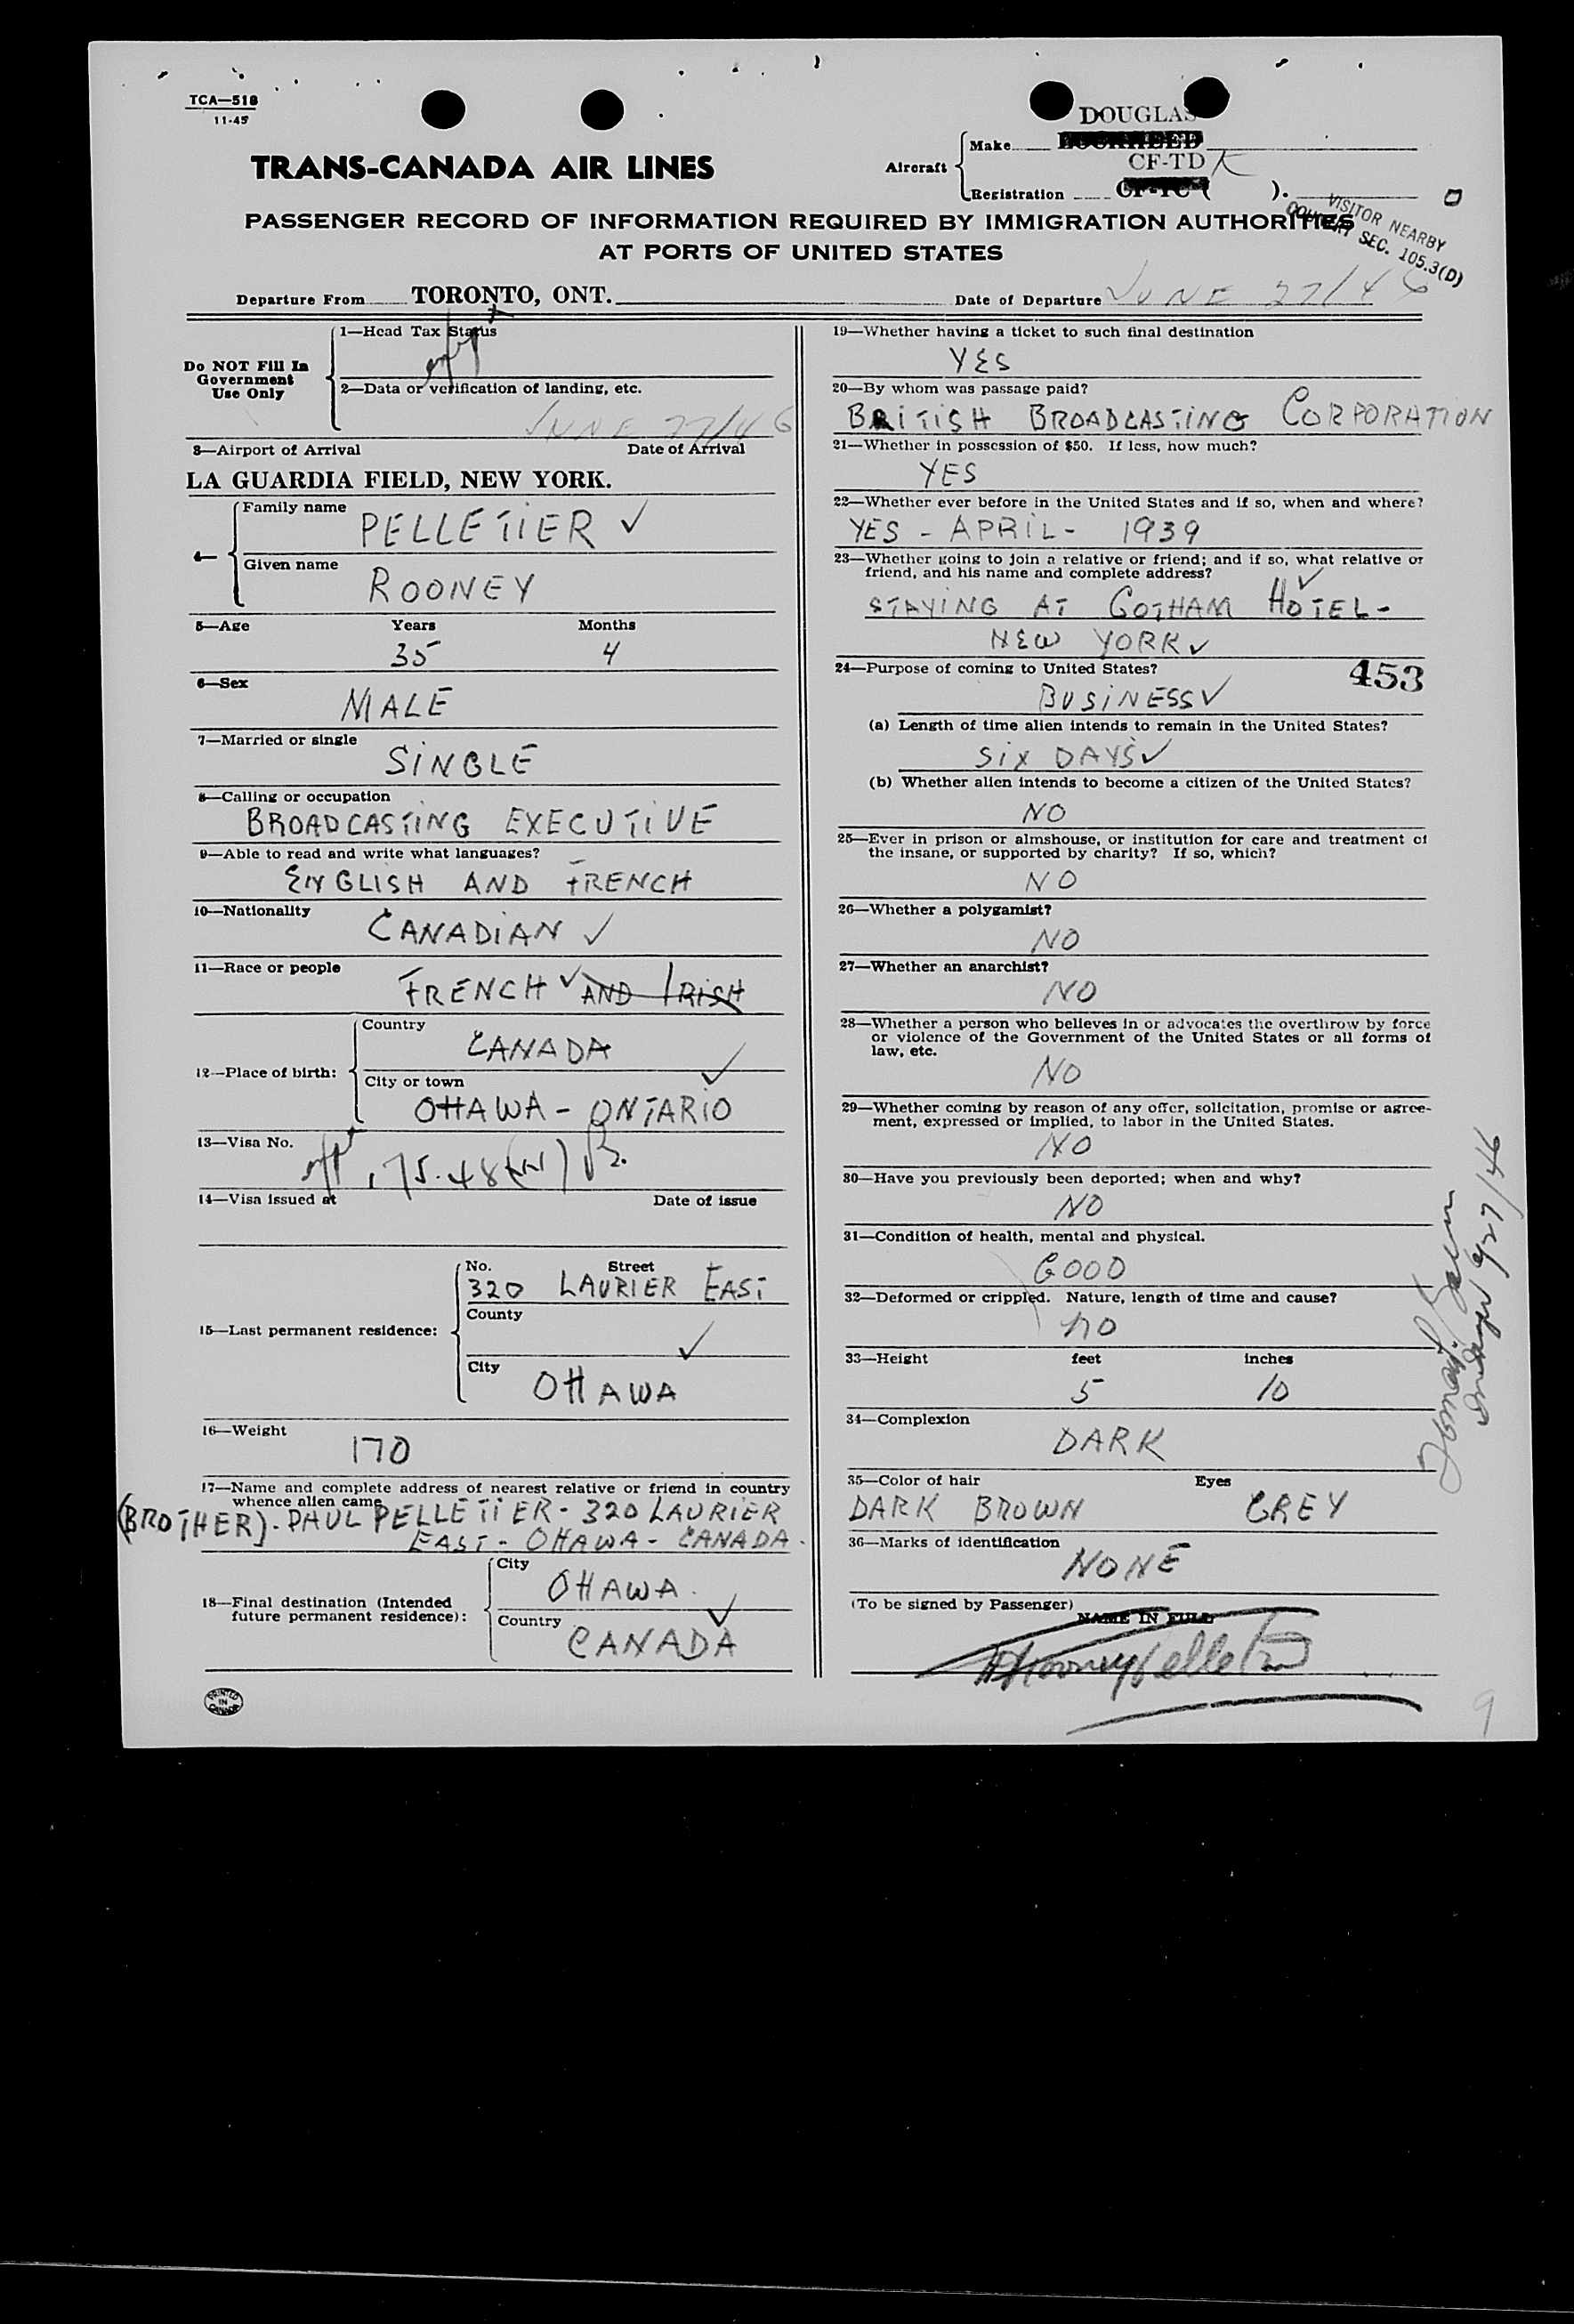 TCA—518
11-45
DOUGLAS
TRANS-CANADA AIR LINES
Aircraft
Make
LOCKHEED
CF-TD K
Registration
CF-TC ( ).
PASSENGER RECORD OF INFORMATION REQUIRED BY IMMIGRATION AUTHORITIES
AT PORTS OF UNITED STATES
VISITOR NEARBY
COUNTRY SEC. 105.3(D)
Departure From TORONTO, ONT.
Date of Departure JUNE 27/46
Do NOT Fill In
Government
Use Only
1—Head Tax Status
2—Data or verification of landing, etc.
JUNE 27/46
3—Airport of Arrival Date of Arrival
LA GUARDIA FIELD, NEW YORK.
4—
Family name
PELLETIER ✓
Given name
ROONEY
5—Age Years Months
35 4
6—Sex
MALE
7—Married or single
SINGLE
8—Calling or occupation
BROADCASTING EXECUTIVE
9—Able to read and write what languages?
ENGLISH AND FRENCH
10—Nationality
CANADIAN ✓
11—Race or people
FRENCH ✓ AND IRISH
12—Place of birth:
Country
CANADA
City or town ✓
OTTAWA - ONTARIO
13—Visa No.
175.48
14—Visa issued at Date of issue
15—Last permanent residence:
No. Street
320 LAURIER EAST
County
✓
City
OTTAWA
16—Weight
170
17—Name and complete address of nearest relative or friend in country
whence alien came
(BROTHER). PAUL PELLETIER - 320 LAURIER
EAST - OTTAWA - CANADA.
18—Final destination (Intended
future permanent residence):
City
OTTAWA.
Country ✓
CANADA
PRINTED
IN
CANADA
19—Whether having a ticket to such final destination
YES
20—By whom was passage paid?
BRITISH BROADCASTING CORPORATION
21—Whether in possession of $50. If less, how much?
YES
22—Whether ever before in the United States and if so, when and where?
YES - APRIL - 1939
23—Whether going to join a relative or friend; and if so, what relative or
friend, and his name and complete address?
STAYING AT GOTHAM HOTEL -
✓
NEW YORK ✓
24—Purpose of coming to United States?
453
BUSINESS ✓
(a) Length of time alien intends to remain in the United States?
SIX DAYS ✓
(b) Whether alien intends to become a citizen of the United States?
NO
25—Ever in prison or almshouse, or institution for care and treatment of
the insane, or supported by charity? If so, which?
NO
26—Whether a polygamist?
NO
27—Whether an anarchist?
NO
28—Whether a person who believes in or advocates the overthrow by force
or violence of the Government of the United States or all forms of
law, etc.
NO
29—Whether coming by reason of any offer, solicitation, promise or agree-
ment, expressed or implied, to labor in the United States.
NO
30—Have you previously been deported; when and why?
NO
31—Condition of health, mental and physical.
GOOD
32—Deformed or crippled. Nature, length of time and cause?
NO
33—Height feet inches
5 10
34—Complexion
DARK
35—Color of hair Eyes
DARK BROWN GREY
36—Marks of identification
NONE
(To be signed by Passenger)
NAME IN FULL
Rooney Pelletier
6/27/46
9